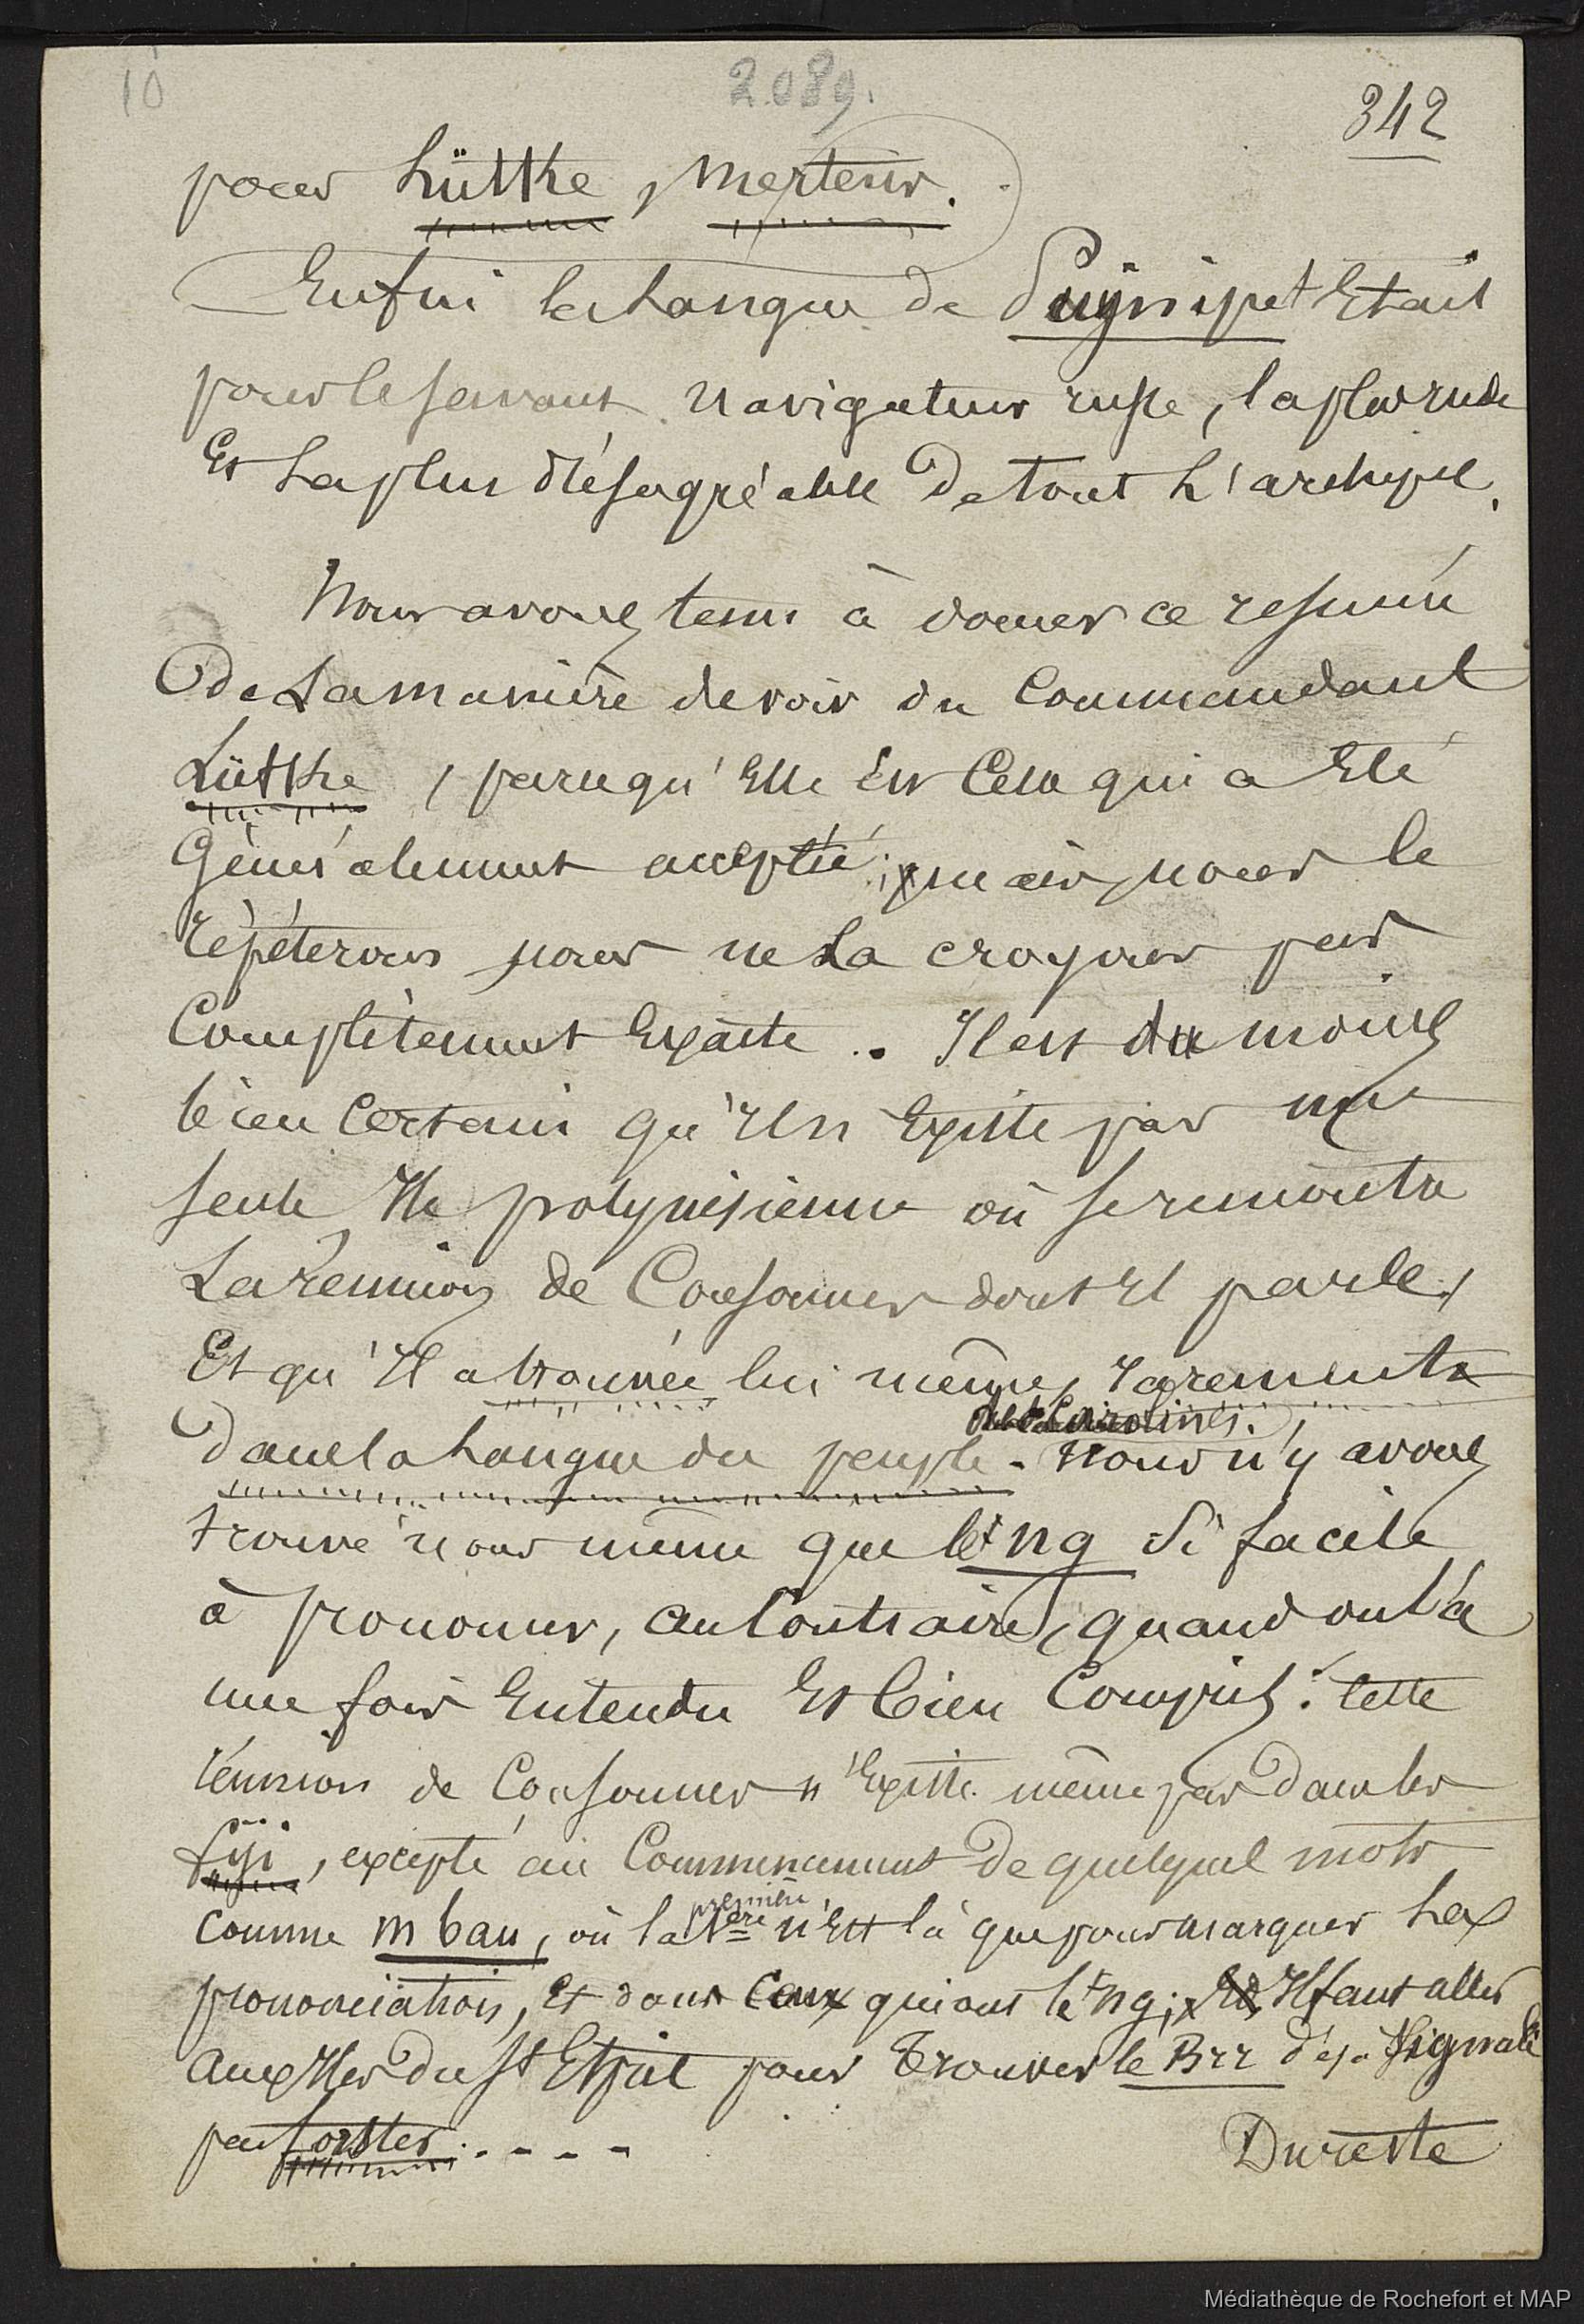 10
2089.
342
pour Lüttke, Mertens.
Enfin la langue de Puynipet était
pour le savant navigateur russe, la plus rude
et la plus désagréable de tout l'archipel.
Nous avons tenu à donner ce résumé
de la manière de voir du Commandant
Lüttke, parcequ'elle est celle qui a été
généralement acceptée; mais, nous le
répéterons nous ne la croyons pas
complètement exacte. Il est du moins
bien certain qu'il n'existe pas une
seule île polynésienne où se rencontre
la réunion de consonnes dont il parle,
et qu'il a trouvée lui même, rarement
dans la langue du peuple des Carolines. Nous n'y avons
trouvé nous même que le ng si facile
à prononcer, au contraire, quand on l'a
une fois entendu et bien compris: cette
réunion de consonnes n'existe même pas dans les
Fiji, excepté au commencement de quelques mots
comme mbau, où la 1ère première n'est là que pour marquer la
prononciation, et dans ceux qui ont le ng; il faut aller
aux îles du St Esprit pour trouver le Brr déjà signalé
par Forster. - - - -
Du reste
Médiathèque de Rochefort et MAP